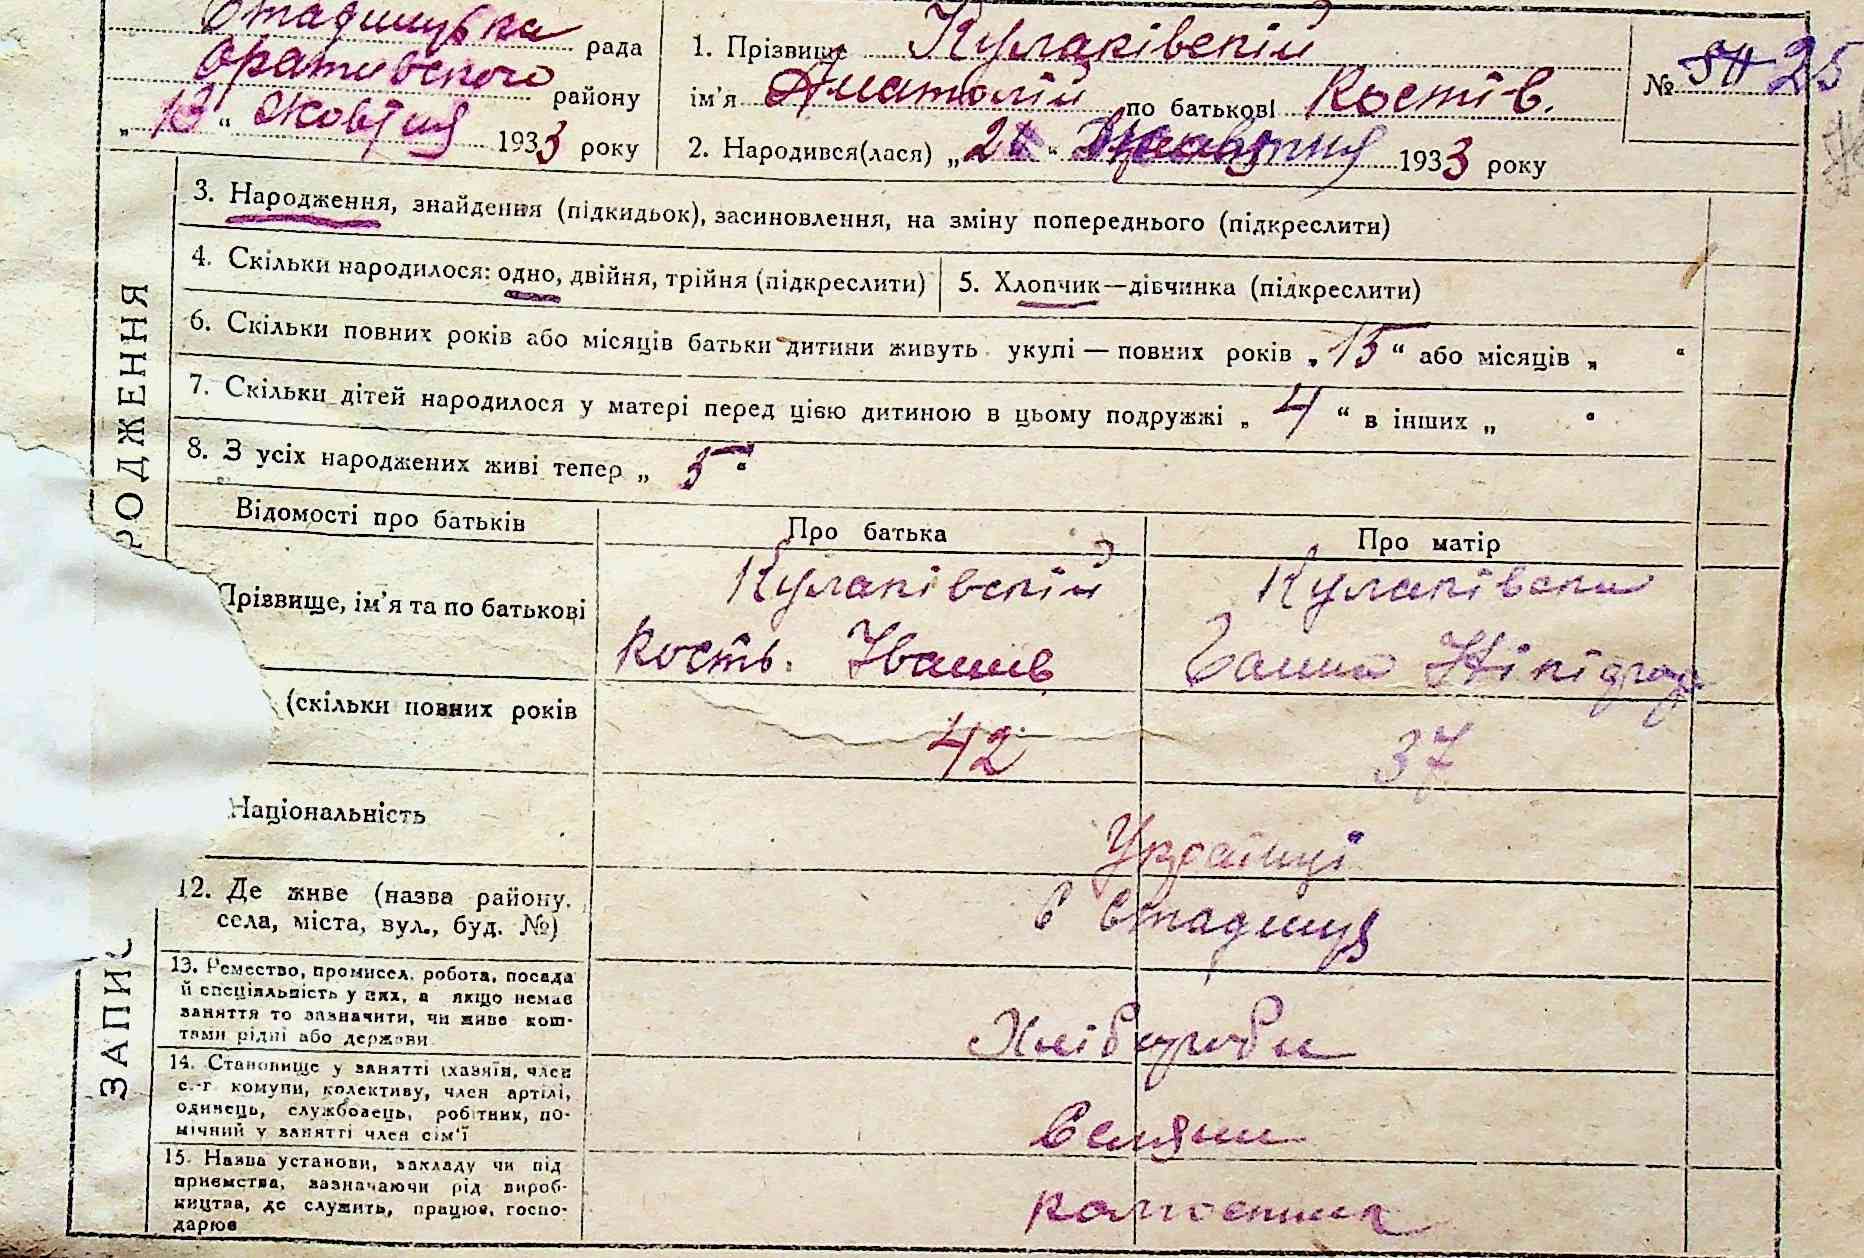 Стадницька рада
Оратівського району
„13“ Жовтня 1933 року
1. Прізвище Кулаківський
ім'я Анатолій по батькові Костів.
№ 25
2. Народився(лася) „ “ 1933 року
3. Народження, знайдення (підкидьок), засиновлення, на зміну попереднього (підкреслити)
4. Скільки народилося: одно, двійня, трійня (підкреслити)
5. Хлопчик—дівчинка (підкреслити)
6. Скільки повних років або місяців батьки дитини живуть укупі — повних років „15“ або місяців „ “
7. Скільки дітей народилося у матері перед цією дитиною в цьому подружжі „4“ в інших „ “
8. З усіх народжених живі тепер „5“
ЗАПИС
РОДЖЕННЯ
Відомості про батьків
Про батька
Про матір
Прізвище, ім'я та по батькові
Кулаківський
Кость Іванів
Кулаківска
Ганна
(скільки повних років
42
37
Національність
Українці
12. Де живе (назва району,
села, міста, вул., буд. №)
в Стадниця
13. Ремество, промисел, робота, посада
й спеціяльність у них, а якщо немає
заняття то зазначити, чи живе кош-
тами рідні або держави
Хлібороби
14. Становище у занятті (хазяїн, член
с.-г комуни, колективу, член артілі,
одинець, службовець, робітник, по-
мічний у занятті член сім'ї
Селяни
15. Назва установи, закладу чи під
приємства, зазначаючи рід вироб-
ництва, де служить, працює, госпо-
дарює
колгоспник